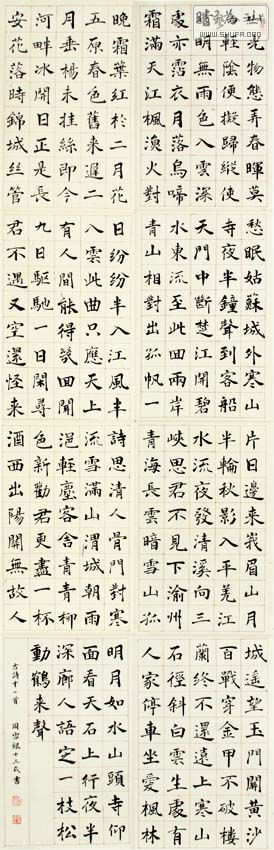 山光物態弄春暉莫
為輕陰便擬歸縱使
晴明無雨色入雲深
處亦霑衣月落烏啼
霜滿天江楓漁火對
愁眠姑蘇城外寒山
寺夜半鐘聲到客船
天門中斷楚江開碧
水東流至此回兩岸
青山相對出孤帆一
片日邊來峨眉山月
半輪秋影入平羌江
水流夜發清溪向三
峽思君不見下渝州
青海長雲暗雪山孤
城遙望玉門關黃沙
百戰穿金甲不破樓
蘭終不還遠上寒山
石徑斜白雲深處有
人家停車坐愛楓林
晚霜葉紅於二月花
五原春色舊來遲二
月垂楊未挂絲即今
河畔冰開日正是長
安花落時錦城絲管
日紛紛半入江風半
入雲此曲只應天上
有人間能得幾回聞
九日驅馳一日閑尋
君不遇又空還怪來
詩思清人骨門對寒
流雪滿山渭城朝雨
浥輕塵客舍青青柳
色新勸君更盡一杯
酒西出陽關無故人
明月如水山頭寺仰
面看天石上行夜半
深廊人語定一枝松
動鶴來聲
古詩十一首
十三歲書
WWW.SHUFA.ORG